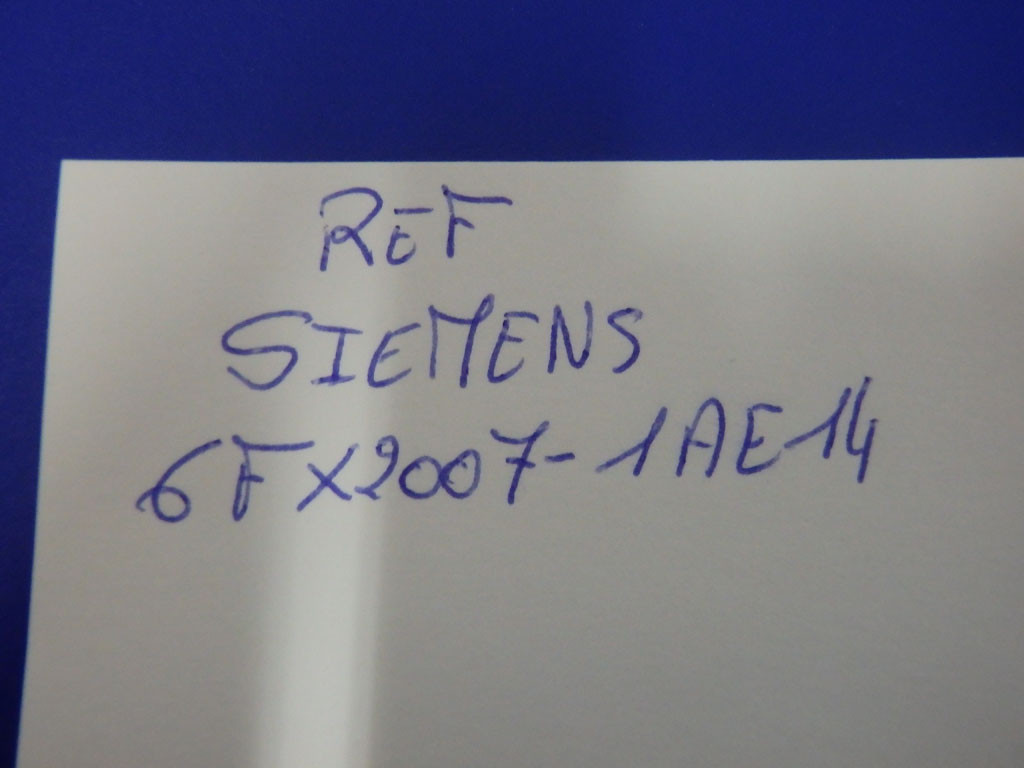 REF
SIEMENS
6FX2007-1AE14